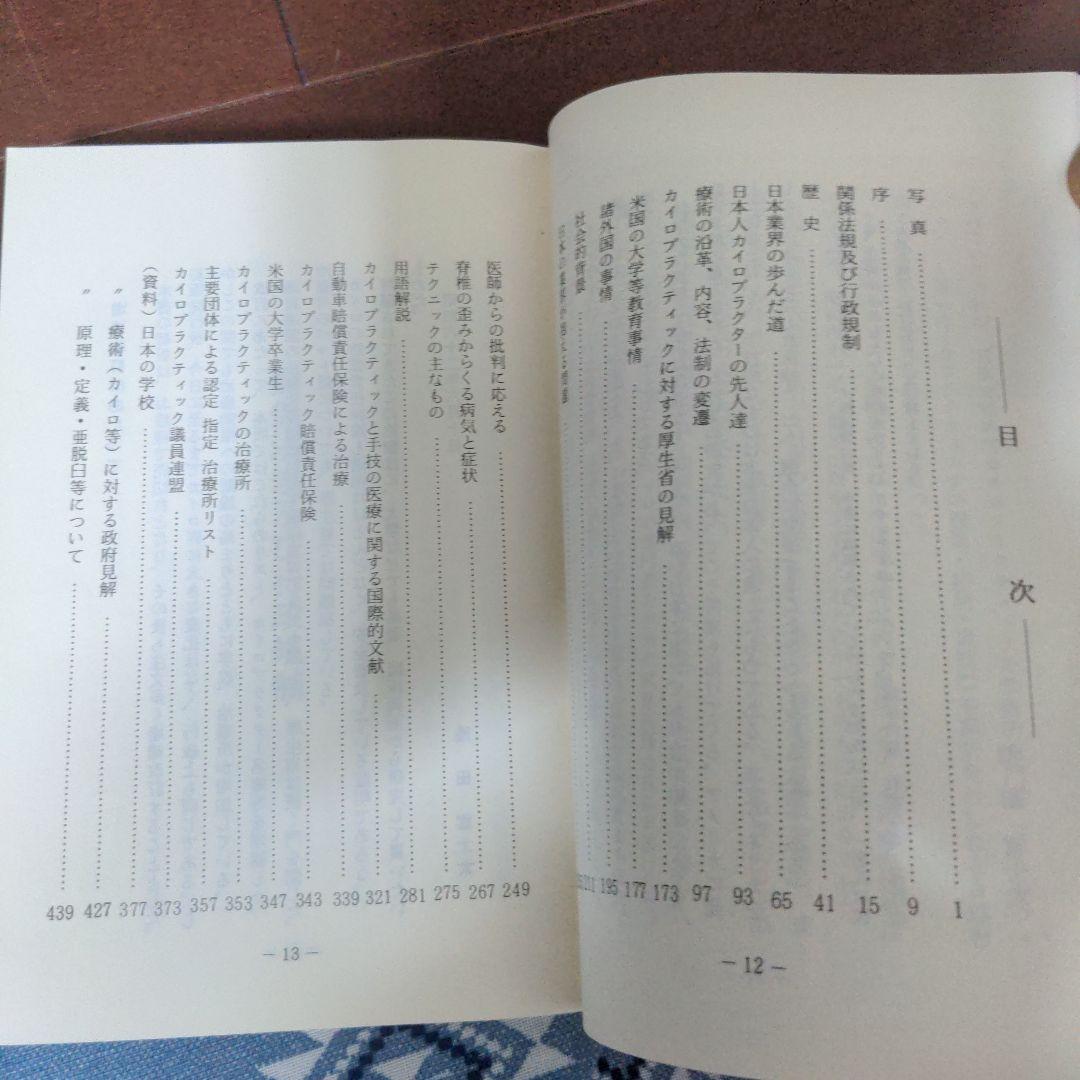 目次
写真……1
序……9
関係法規及び行政規制……15
歴史……41
日本業界の歩んだ道……65
日本人カイロプラクターの先人達……93
療術の沿革、内容、法制の変遷……97
カイロプラクティックに対する厚生省の見解……173
米国の大学等教育事情……177
諸外国の事情……195
社会的背景……211
— 12 —
医師からの批判に応える……249
脊椎の歪みからくる病気と症状……267
テクニックの主なもの……275
用語解説……281
カイロプラクティックと手技の医療に関する国際的文献……321
自動車賠償責任保険による治療……339
カイロプラクティック賠償責任保険……343
米国の大学卒業生……347
カイロプラクティックの治療所……353
主要団体による認定 指定 治療所リスト……357
カイロプラクティック議員連盟……373
(資料)日本の学校……377
〃 療術(カイロ等)に対する政府見解……427
〃 原理・定義・亜脱臼等について……439
— 13 —